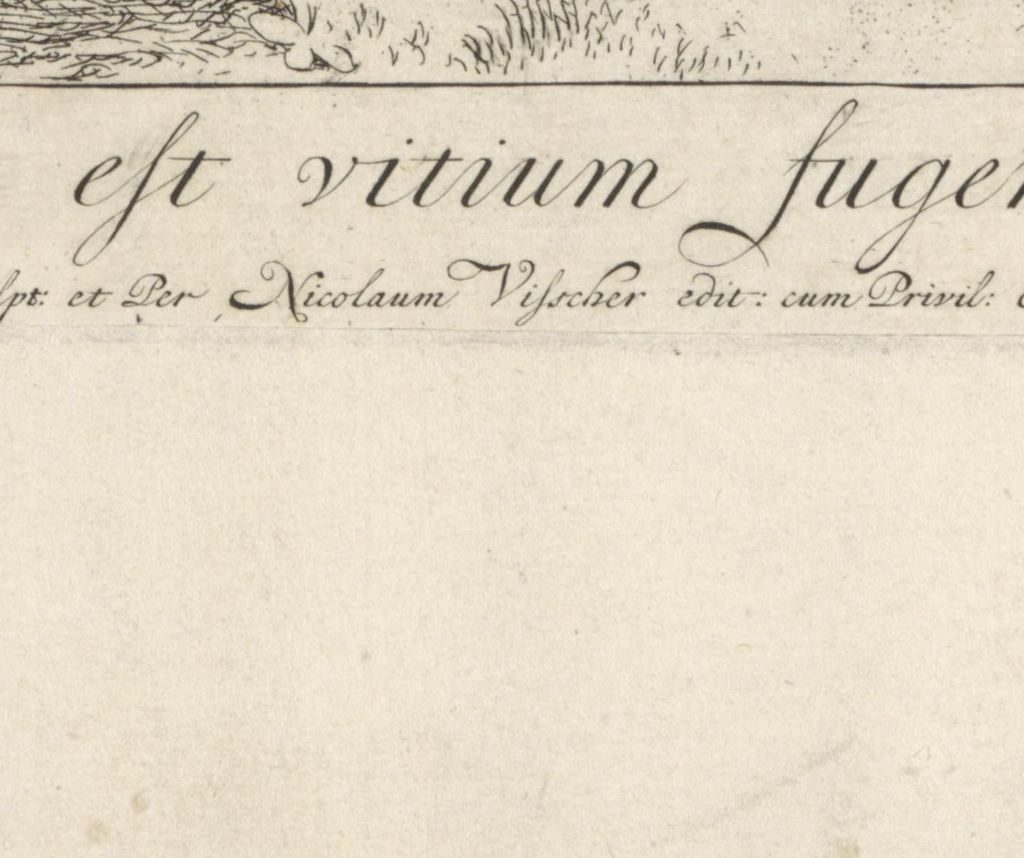 est vitium fuger
lpt: et Per Nicolaum Visscher edit: cum Privil: